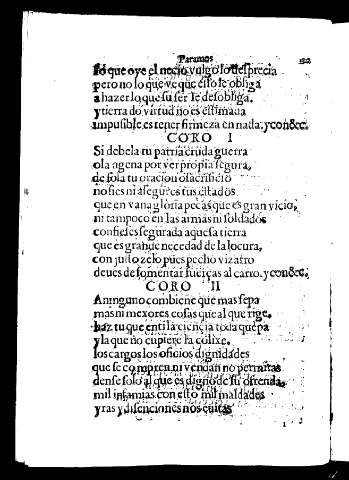 Paramos
lo que oye el necio vulgo lo desprecia
pero no lo que ve que esto le obliga
a hazer lo que su ser le desobliga.
y tierra do virtud no es estimada
impusible es tener firmeza en nada. y conosce.
CORO I
Si debela tu patria cruda guerra
o la agena por ver propia segura,
de sola tu oracion o sacrificio
no fies ni asegures tus estados
que en vana gloria pecas que es gran vicio,
ni tampoco en las armas ni soldados
confies es segurada aquesa tierra
que es grande necedad de la locura,
con justo zelo pues pecho vizarro
deues de fomentar fuerças al carro. y conosce.
CORO II
A ninguno combiene que mas sepa
mas ni mexores cosas que al que rige.
haz tu que en ti la ciencia toda quepa
y la que no cupiere la colixe.
los cargos los oficios dignidades
que se compren ni vendan no permitas
dense solo al que es digno de su ofrenda,
mil infamias con esto mil maldades
yras y disenciones nos euitas